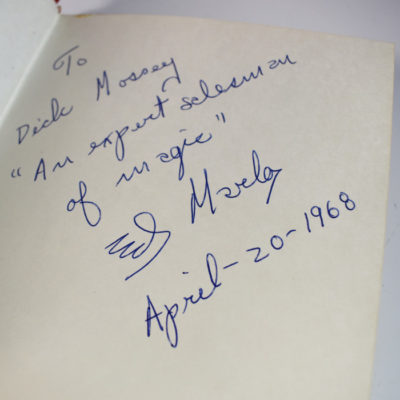 To
Dick Mossey
"An expert salesman
of magic"
Ed Marlo
April-20-1968